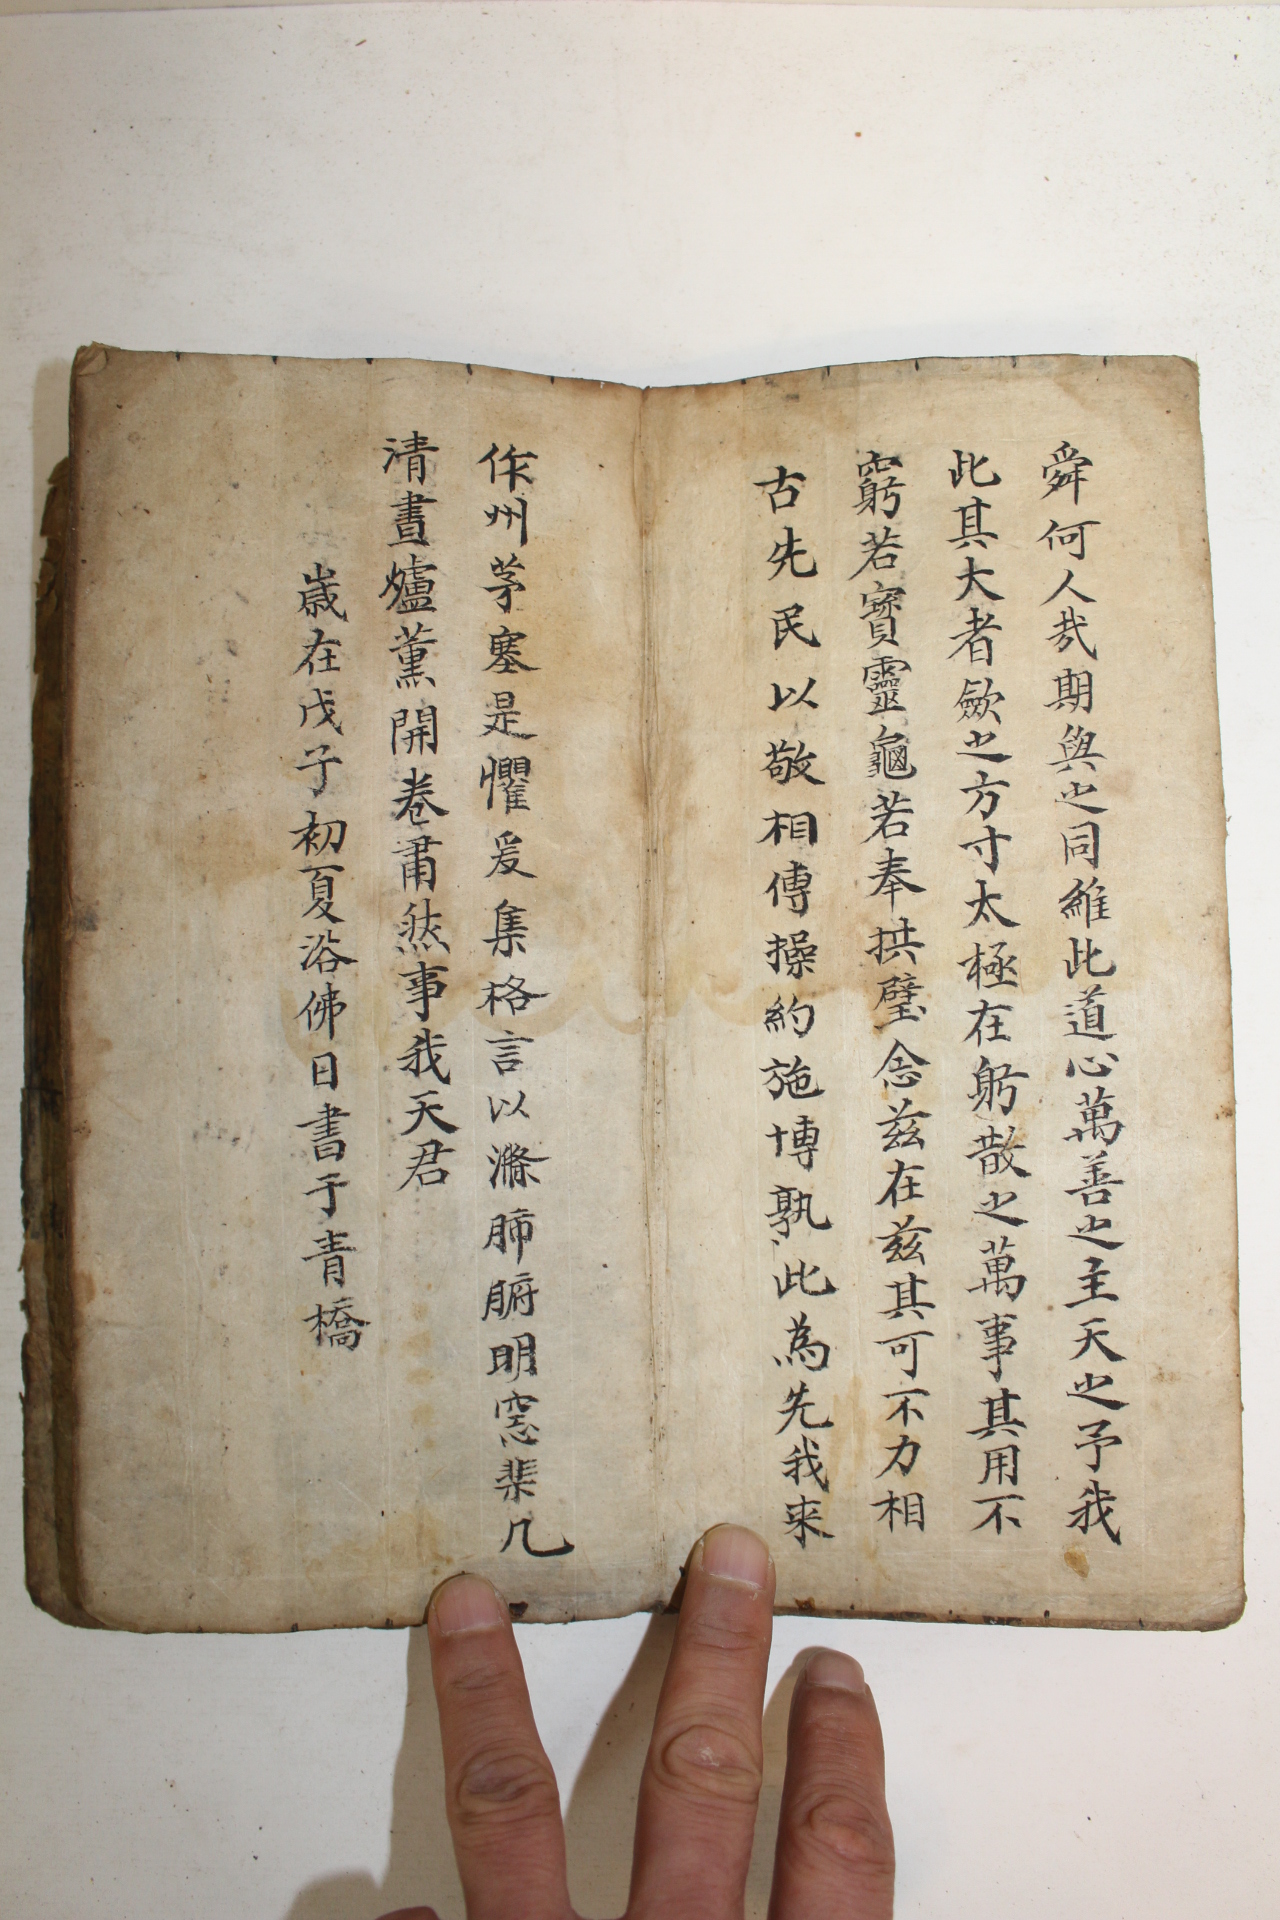 舜何人㢤期與之同維此道心萬善之主天之予我
此其大者歛之方寸太極在躬散之萬事其用不
窮若寶靈龜若奉拱璧念兹在兹其可不力相
古先民以敬相傳操約施博孰此為先我来
作州茅塞是懼爰集格言以滌肺腑明窓棐几
清晝爐薰開卷肅然事我天君
歲在戊子初夏浴佛日書于青橋